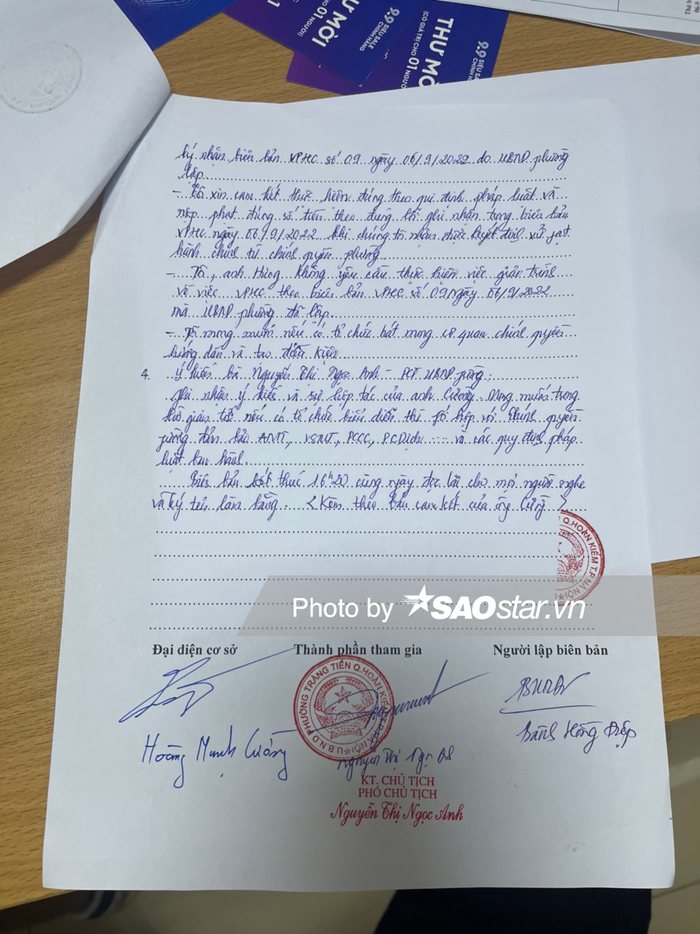 9.9 SIÊU SALE
CHÍNH HÃNG
THƯ MỜI
(CÓ GIÁ TRỊ CHO 01 NGƯỜI)
9.9 SIÊU SALE
CHÍNH HÃNG
THƯ MỜI
ký nhận biên bản VPHC số 09 ngày 06/9/2022 do UBND phường
lập
- Tôi xin cam kết thực hiện đúng theo qui định pháp luật và
nộp phạt đúng số tiền theo đúng lỗi ghi nhận trong biên bản
VPHC ngày 06/9/2022 khi chúng tôi nhận được quyết định xử phạt
hành chính từ chính quyền phường
- Tôi, anh Hùng không yêu cầu thực hiện việc giải trình
về việc VPHC theo biên bản VPHC số 09 ngày 06/9/2022
mà UBND phường đã lập.
- Tôi mong muốn nếu có tổ chức quan chính quyền
hướng dẫn và tạo điều kiện
4. Ý kiến bà Nguyễn Thị Ngọc Anh - PCT UBND phường:
ghi nhận ý kiến và sự hợp tác của anh Cường. mong muốn trong
thời gian tới nếu có tổ chức biểu diễn thì phối hợp với chính quyền
phường đảm bảo ANTT, VSMT, PCCC, P.C Dịch và các quy định pháp
luật
Biên bản kết thúc 16h20 cùng ngày đọc lại cho mọi người nghe
và ký tên làm bằng. <Kèm theo bản cam kết của ông Cường>
Q.HOÀN KIẾM T.P HÀ NỘI
Photo by SAOstar.vn
Đại diện cơ sở Thành phần tham gia Người lập biên bản
U.B.N.D PHƯỜNG TRÀNG TIỀN Q.HOÀN KIẾM T.P HÀ NỘI
Hoàng Mạnh Cường
Nguyễn Thị Ngọc
Bành Hồng Điệp
KT. CHỦ TỊCH
PHÓ CHỦ TỊCH
Nguyễn Thị Ngọc Anh